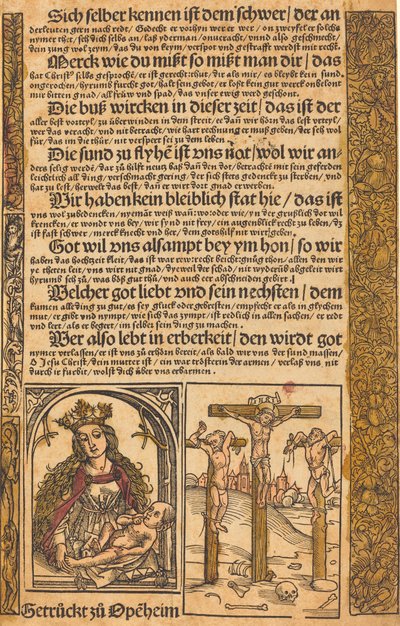 Sich selber kennen ist dem schwer / der an
derleuten gern nach redt / Gedecht er vorhyn wer er wer / on zweyfel er solchs
nymer thet / sch dich selbs an / laß yderman / onveracht / vnnd also geschmecht /
dein zung wol zeym / das du von keym / verspot vnd gestrafft werdst mit recht.
Merck wie du mißt so mißt man dir / das
hat Christus selbs gesproche / er ist gerecht / thut / dir als mir / es bleybt kein sund
ongerochen / hyrumb furcht got / halt sein gebot / er lost kein gut werck onbelont
mir bitten gnad / all früw vnd spad / das vnser ewig werd geschont.
Die buß wircken in dieser zeit / das ist der
aller best vorteyl / zu überwinden in dem streit / er dan wir hörn das lest vrteyl /
wer das veracht / vnd nit betracht / wie hart rechnung er muß geben / der seh wol
für / das im die thür / nit versperr sei zu dem leben
Die sund zu flyhe ist vns not / wol wir an
ders selig werde / dar zu hilft neust baß dan den dot / betrachte mit sein geferden
leichtlich all ding / verschmacht gering / der sich stets gedenckt zu sterben / vnd
hat zu lest / herwelt das best / dan er wirt dort gnad erwerben.
Wir haben kein bleiblich stat hie / das ist
vns wol zubedencken / nyemat weiß wan: wo: oder wie / yn der grußlich dot wil
krencken / er wondt vns bey / wir synd nit frey / ein augenblick recht zu leben / dz
ist fast schwer / merck knecht vnd her / dem gots hilf nit wirt geben.
Got wil vns alsampt bey ym hon / so wir
haben das hochzeit kleit / das ist war rew: recht beicht: gnug thon / allen den wir
ye theten leit / vns wirt nit gnad / dyeweil der schad / nit wyderub abgeleit wirt
hyrumb seh zu / was böß gut thu / vnd auch eer abschneiden gebirt
Welcher got liebt vnd sein nechsten / dem
kumen all ding zu gut / es sey gluck oder gebresten / empfecht er als in glychem
mut / er gibt vnd nympt / wie sich das zympt / ist redlich in allen sachen / er redt
vnd lert / als er begert / im selbes sein ding zu machen.
Wer also lebt in erberkeit / den wirdt got
nymer verlassen / er ist vns zu erhörn bereit / als bald wir vns der sund massen /
O Jesu Christ / dein mutter ist / ein war trösterin der armen / verlaß vns nit
durch ir furbit / wolst dich über vns erbarmen.
Getrückt zu Opēheim